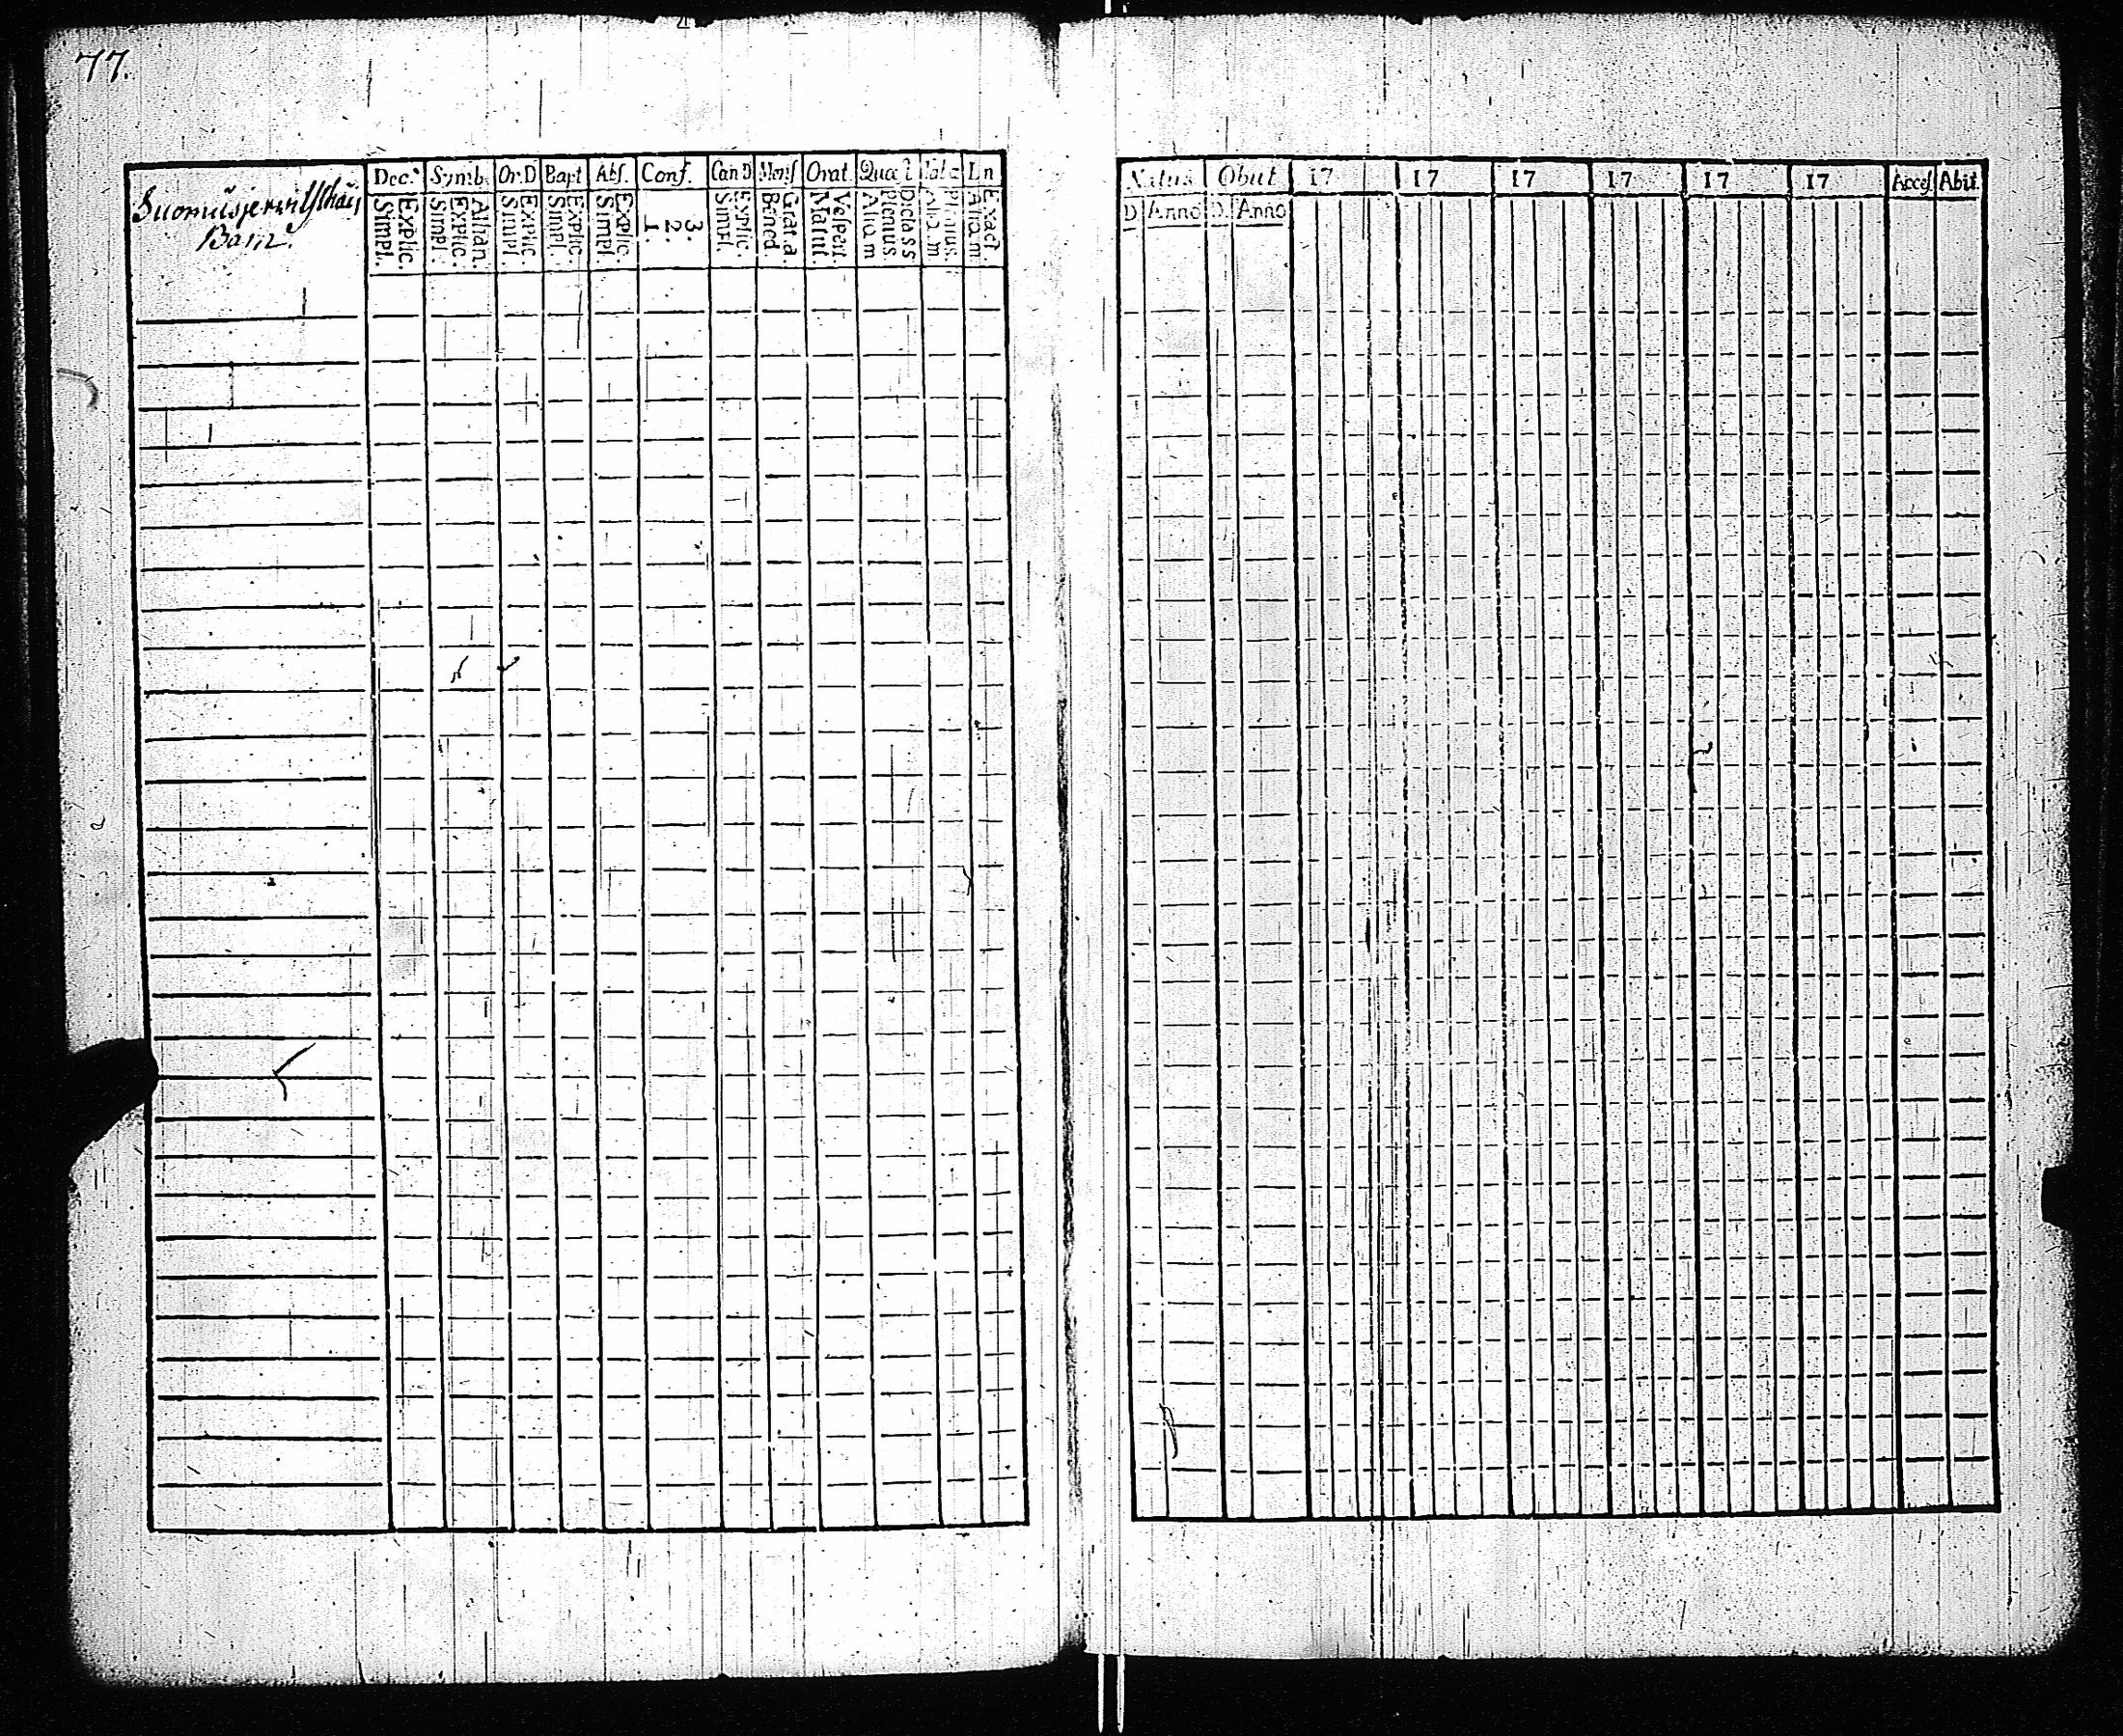 77.
Suomusjerwi
Barn.
Dec. Symb. Or.D Bapt Abs. Conf. Can D Mens Orat. Quæst Tab æ Ln
Explic. Simpl.
Athan. Explic. Simpl.
Explic. Simpl.
Explic. Simpl.
Explic. Simpl.
3. 2. 1.
Explic. Simpl.
Grat. a. Bened.
Vesper. Matut.
Dicta ss Plenius Aliq m
Plenius. Aliq m
Exact. Aliq m
Natus Obiit 17 17 17 17 17 17 Acces Abit.
D Anno D. Anno